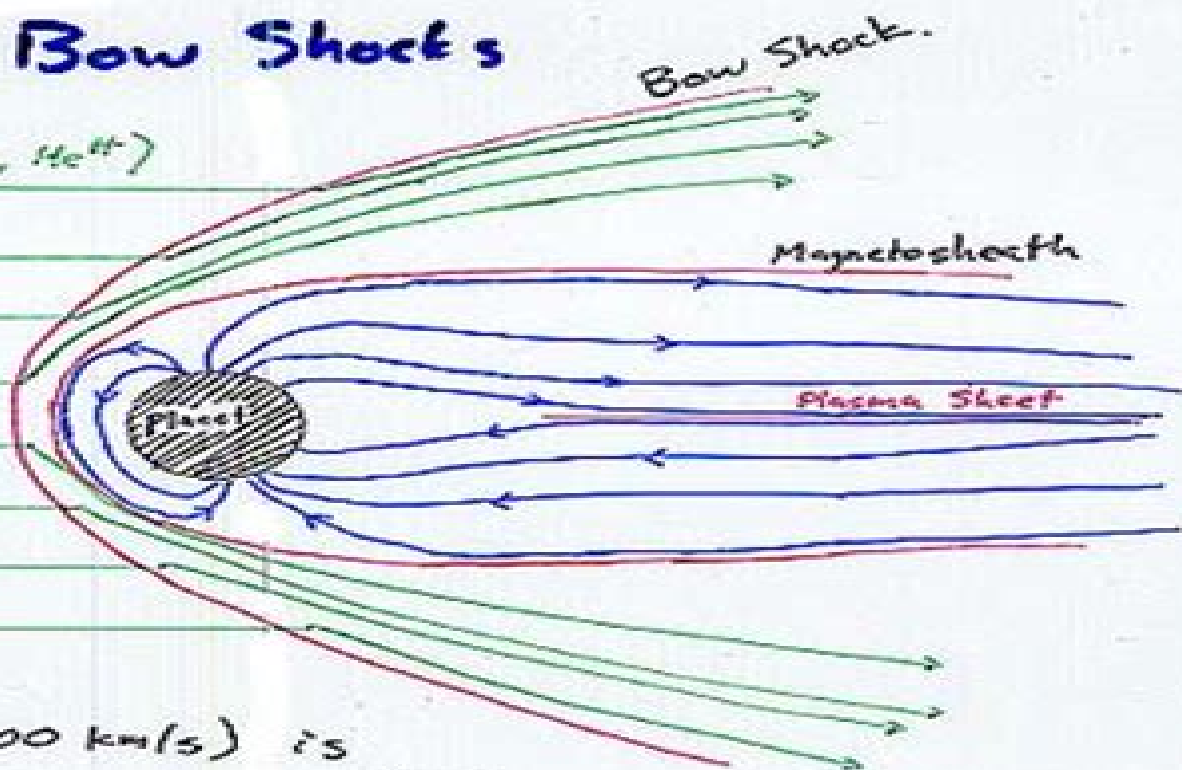 Bow Shocks
Bow Shock.
, He⁺⁺)
Magnetosheath
Plasma Sheet
Planet
00 km/s) is